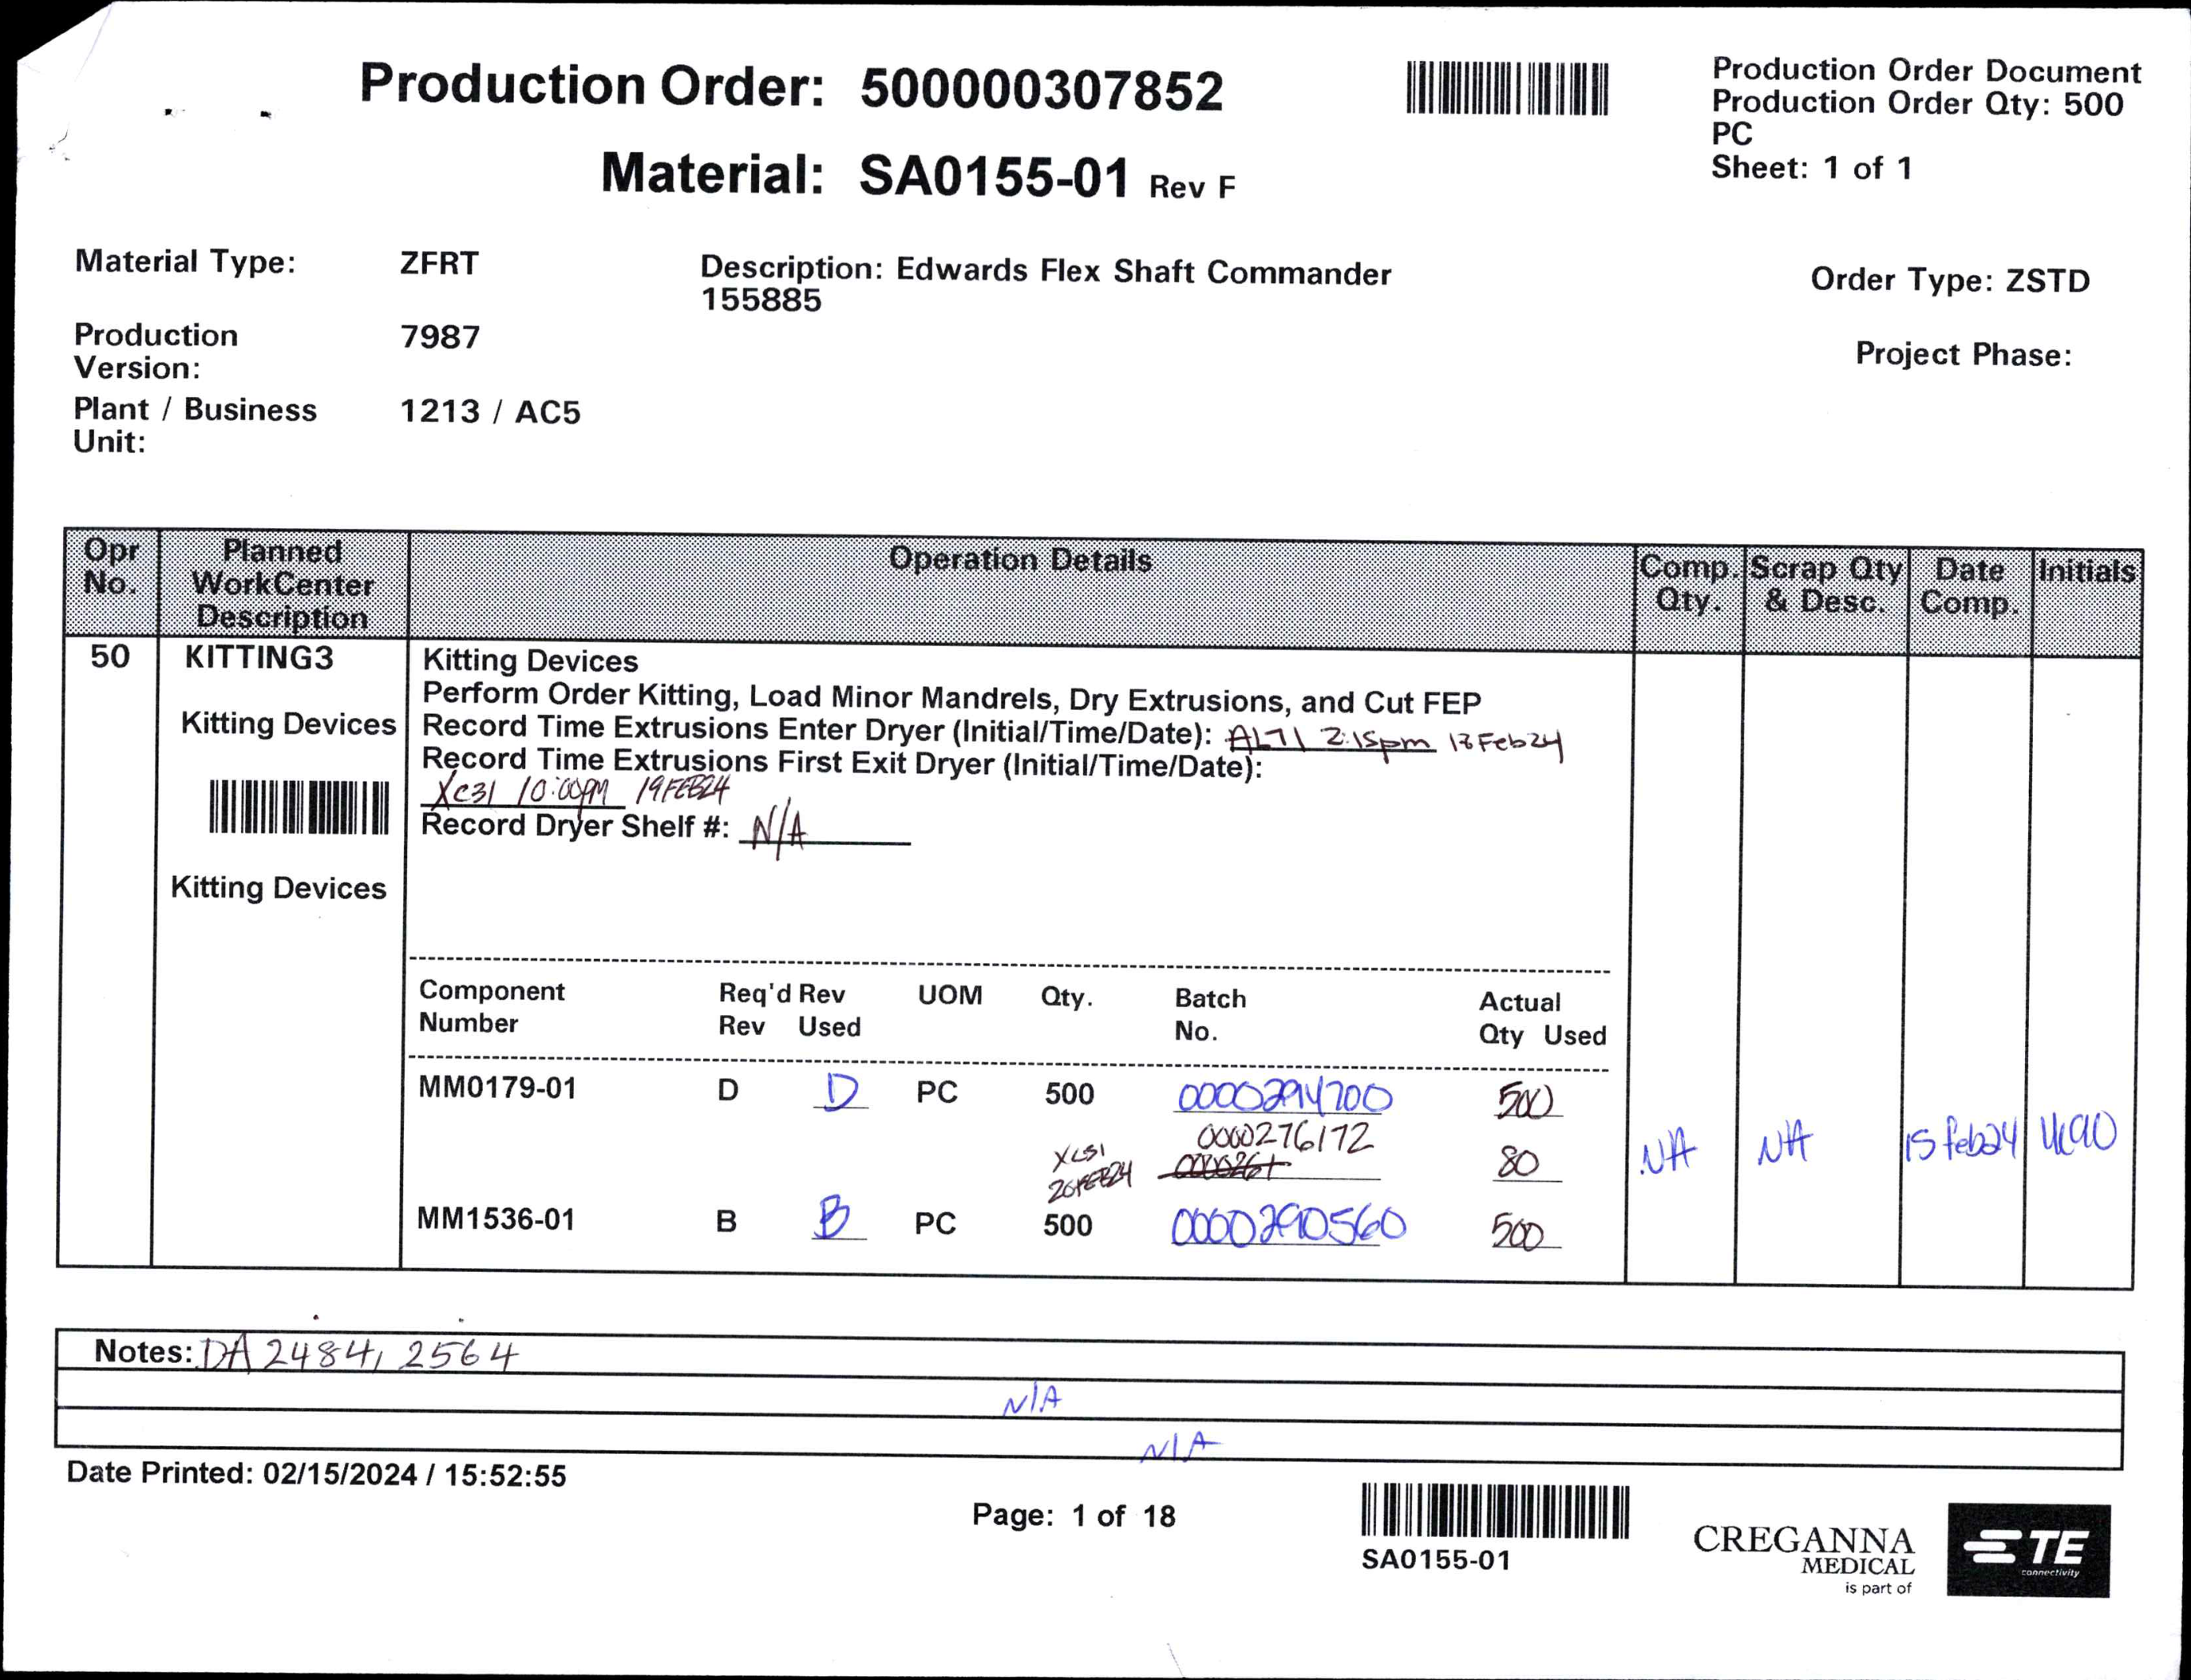 Production Order: 500000307852
Production Order Document
Production Order Qty: 500
PC
Sheet: 1 of 1
Material: SA0155-01 Rev F
Material Type: ZFRT
Description: Edwards Flex Shaft Commander
155885
Order Type: ZSTD
Production
Version: 7987
Project Phase:
Plant / Business
Unit: 1213 / AC5
Opr
No.
Planned
WorkCenter
Description
Operation Details
Comp.
Qty.
Scrap Qty
& Desc.
Date
Comp.
Initials
50
KITTING3
Kitting Devices
Kitting Devices
Kitting Devices
Perform Order Kitting, Load Minor Mandrels, Dry Extrusions, and Cut FEP
Record Time Extrusions Enter Dryer (Initial/Time/Date): AL71 2:15pm Feb24
Record Time Extrusions First Exit Dryer (Initial/Time/Date):
XC31 10:00PM 19FEB24
Record Dryer Shelf #: N/A
Component
Number
Req'd
Rev
Rev
Used
UOM
Qty.
Batch
No.
Actual
Qty Used
MM0179-01 D D PC 500 0000294700 500
0000276172
80
26FEB24
MM1536-01 B B PC 500 0000290560 500
NA
NA
15feb24
Notes: DA 2484, 2564
N/A
N/A
Date Printed: 02/15/2024 / 15:52:55
Page: 1 of 18
SA0155-01
CREGANNA
MEDICAL
is part of
TE
connectivity